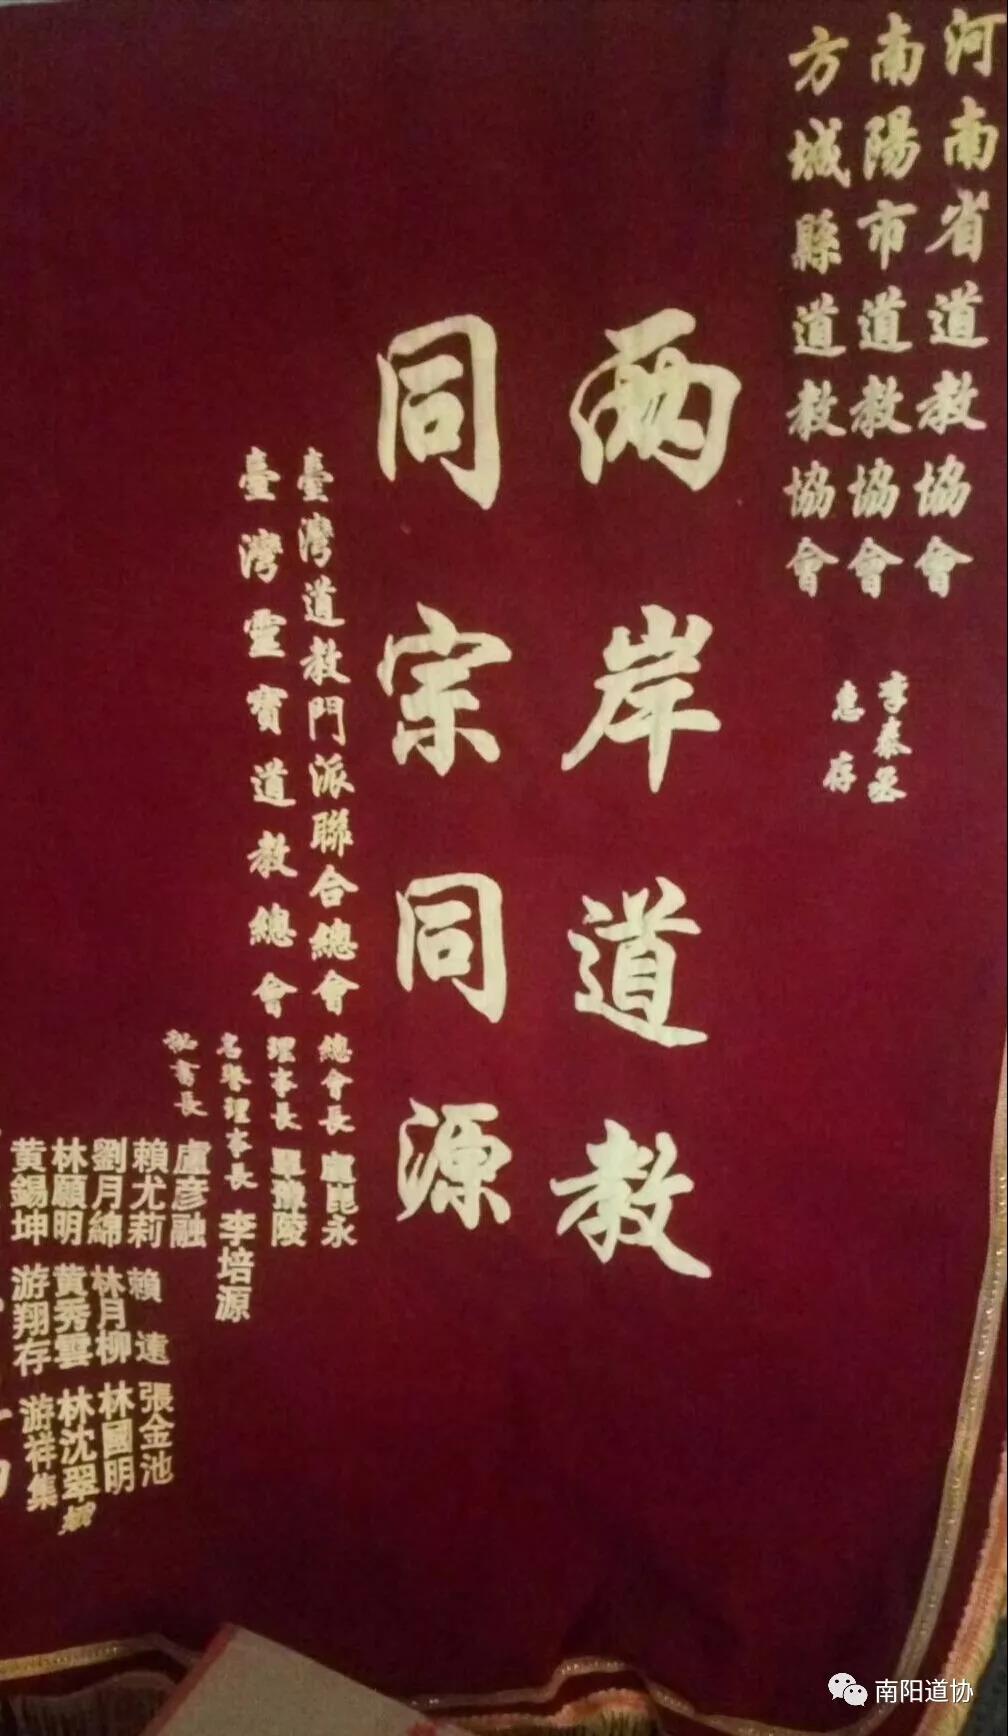 河南省道教協會
南陽市道教協會
方城縣道教協會
李泰丞
惠存
兩岸道教
同宗同源
臺灣道教門派聯合總會 總會長 盧崑永
臺灣靈寶道教總會 理事長 陵
名譽理事長 李培源
秘書長 盧彥融
賴尤莉 賴連 張金池
劉月綿 林月柳 林國明
林願明 黃秀雲 林沈翠娥
黃錫坤 游翔存 游祥集
南阳道协